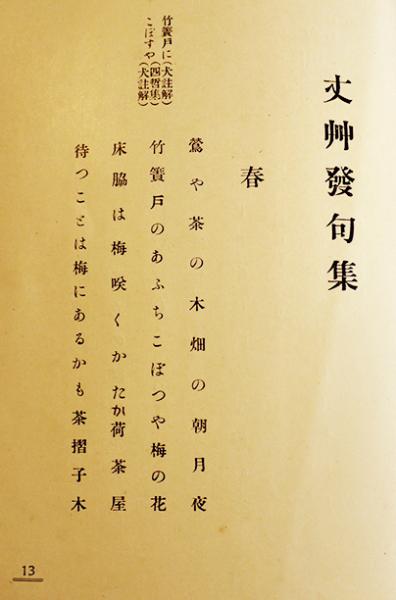 丈艸發句集
春
鶯や茶の木畑の朝月夜
竹簀戸のあふちこぼつや梅の花
床脇は梅咲くかたか荷茶屋
待つことは梅にあるかも茶摺子木
竹簀戸に(犬註解)
こぼすや(四哲集)(犬註解)
13